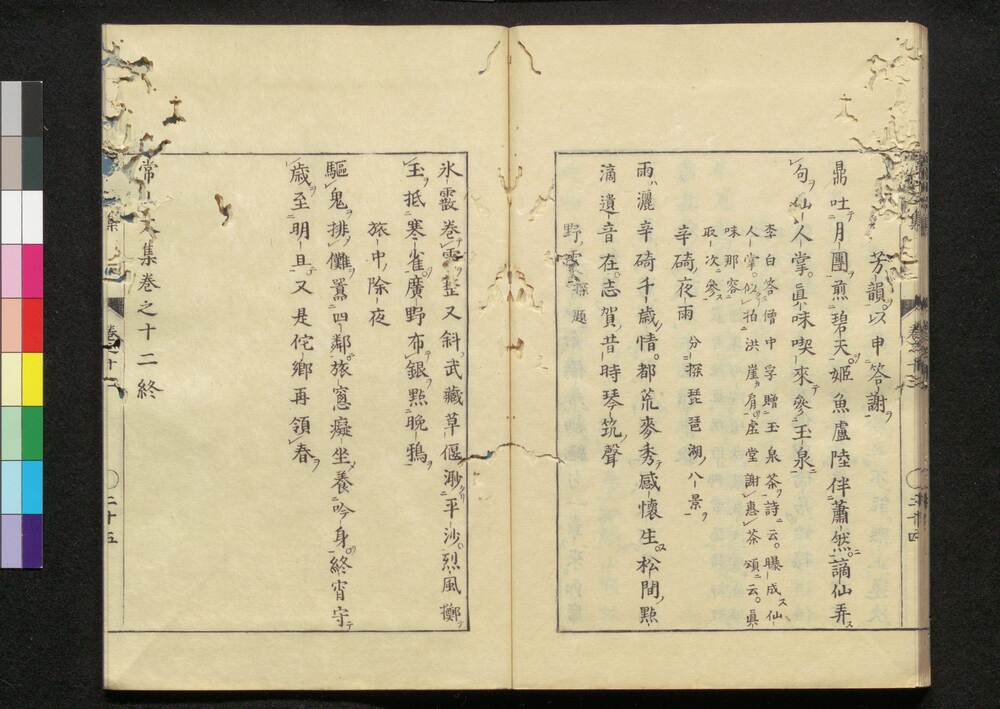 芳韻。以申答謝
鼎吐月團煎碧天。姬魚盧陸伴蕭然。謫仙弄
句仙人掌。真味喫來參玉泉
李白答僧中孚贈玉泉茶詩云。曝成仙
人掌。似拍洪崖肩。虛堂謝惠茶頌云。真
味那容取次參
辛碕夜雨 分探琵琶湖八景
雨灑辛碕千歲情。都荒麥秀感懷生。松間點
滴遺音在。志賀昔時琴筑聲
野雪 探題
氷霰卷雪整又斜。武藏草偃渺平沙。烈風擲
玉抵寒雀。廣野布銀點晚鴉
旅中除夜
驅鬼排儺罵四鄰。旅窓癡坐養吟身。終宵守
歲至明旦。又是侘鄉再領春
常 集卷之十二終
卷之十二
二十四
卷之十二
二十五